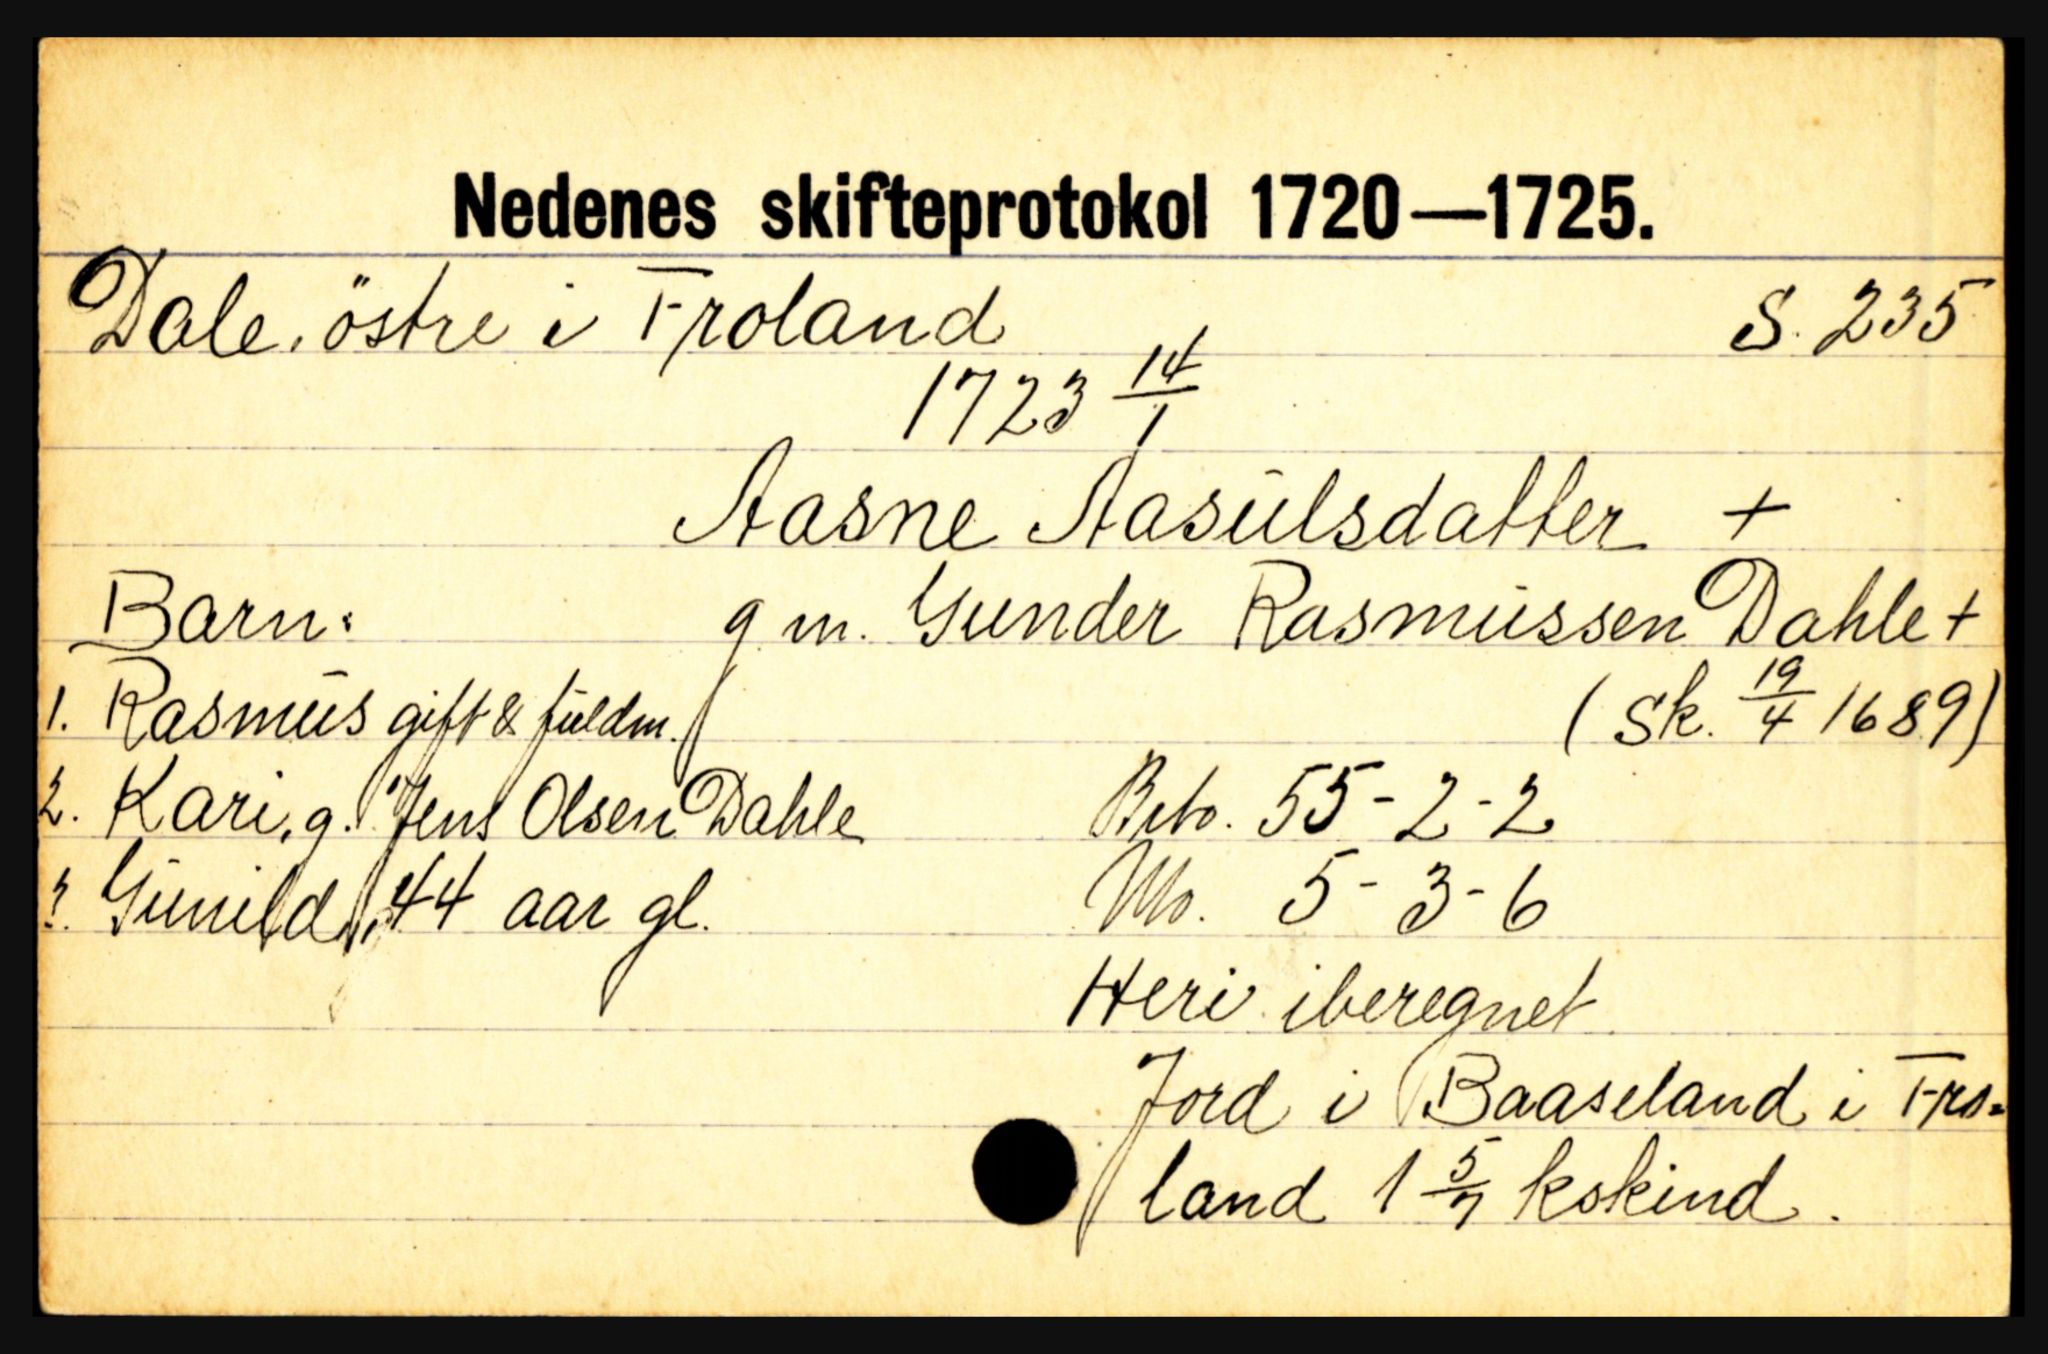 Nedenes skifteprotokol 1720—1725.
Dale, östre i Froland S. 235
1723 14/1
Aasne Aasulsdatter +
Barn: g m. Gunder Rasmussen Dahle +
1. Rasmus gift & fuldm. (Sk. 19/4 1689)
2. Kari, g. Jens Olsen Dahle Brto. 55-2-2
3. Gunild, 44 aar gl. No. 5-3-6
Heri iberegnet
Jord i Baaseland i Fro=
land 1 5/7 kskind.